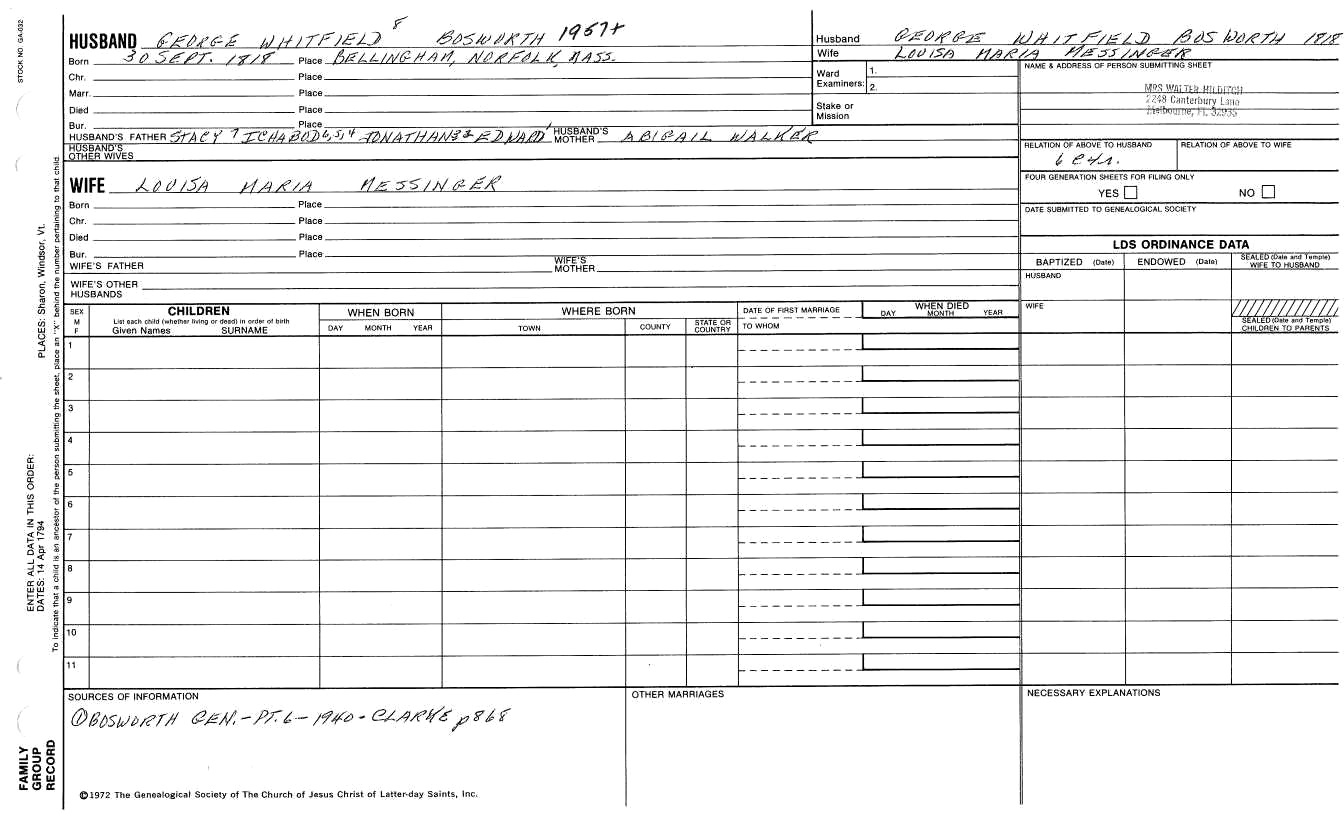 STOCK NO. GA-032
HUSBAND GEORGE WHITFIELD 8 BOSWORTH 1957+
Born 30 SEPT. 1818 Place BELLINGHAM, NORFOLK, MASS.
Chr. Place
Marr. Place
Died Place
Bur. Place
HUSBAND'S FATHER STACY 7 ICHABOD 6,5,4 JONATHAN 3,2 EDWARD 1 HUSBAND'S MOTHER ABIGAIL WALKER
HUSBAND'S OTHER WIVES
WIFE LOUISA MARIA MESSINGER
Born Place
Chr. Place
Died Place
Bur. Place
WIFE'S FATHER WIFE'S MOTHER
WIFE'S OTHER HUSBANDS
Husband GEORGE WHITFIELD BOSWORTH 1818
Wife LOUISA MARIA MESSINGER
Ward 1.
Examiners: 2.
Stake or Mission
NAME & ADDRESS OF PERSON SUBMITTING SHEET
MRS WALTER HILDITCH
2248 Canterbury Lane
Melbourne, FL 32935
RELATION OF ABOVE TO HUSBAND RELATION OF ABOVE TO WIFE
FOUR GENERATION SHEETS FOR FILING ONLY
YES NO
DATE SUBMITTED TO GENEALOGICAL SOCIETY
LDS ORDINANCE DATA
BAPTIZED (Date) ENDOWED (Date) SEALED (Date and Temple) WIFE TO HUSBAND
HUSBAND
WIFE
SEALED (Date and Temple) CHILDREN TO PARENTS
SEX M F
CHILDREN
List each child (whether living or dead) in order of birth
Given Names SURNAME
WHEN BORN
DAY MONTH YEAR
WHERE BORN
TOWN COUNTY STATE OR COUNTRY
DATE OF FIRST MARRIAGE
TO WHOM
WHEN DIED
DAY MONTH YEAR
1
2
3
4
5
6
7
8
9
10
11
SOURCES OF INFORMATION
① BOSWORTH GEN. - PT. 6 - 1940 - CLARKE p868
OTHER MARRIAGES
NECESSARY EXPLANATIONS
©1972 The Genealogical Society of The Church of Jesus Christ of Latter-day Saints, Inc.
FAMILY
GROUP
RECORD
ENTER ALL DATA IN THIS ORDER:
DATES: 14 Apr 1794
PLACES: Sharon, Windsor, Vt.
To indicate that a child is an ancestor of the person submitting the sheet, place an "X" behind the number pertaining to that child.